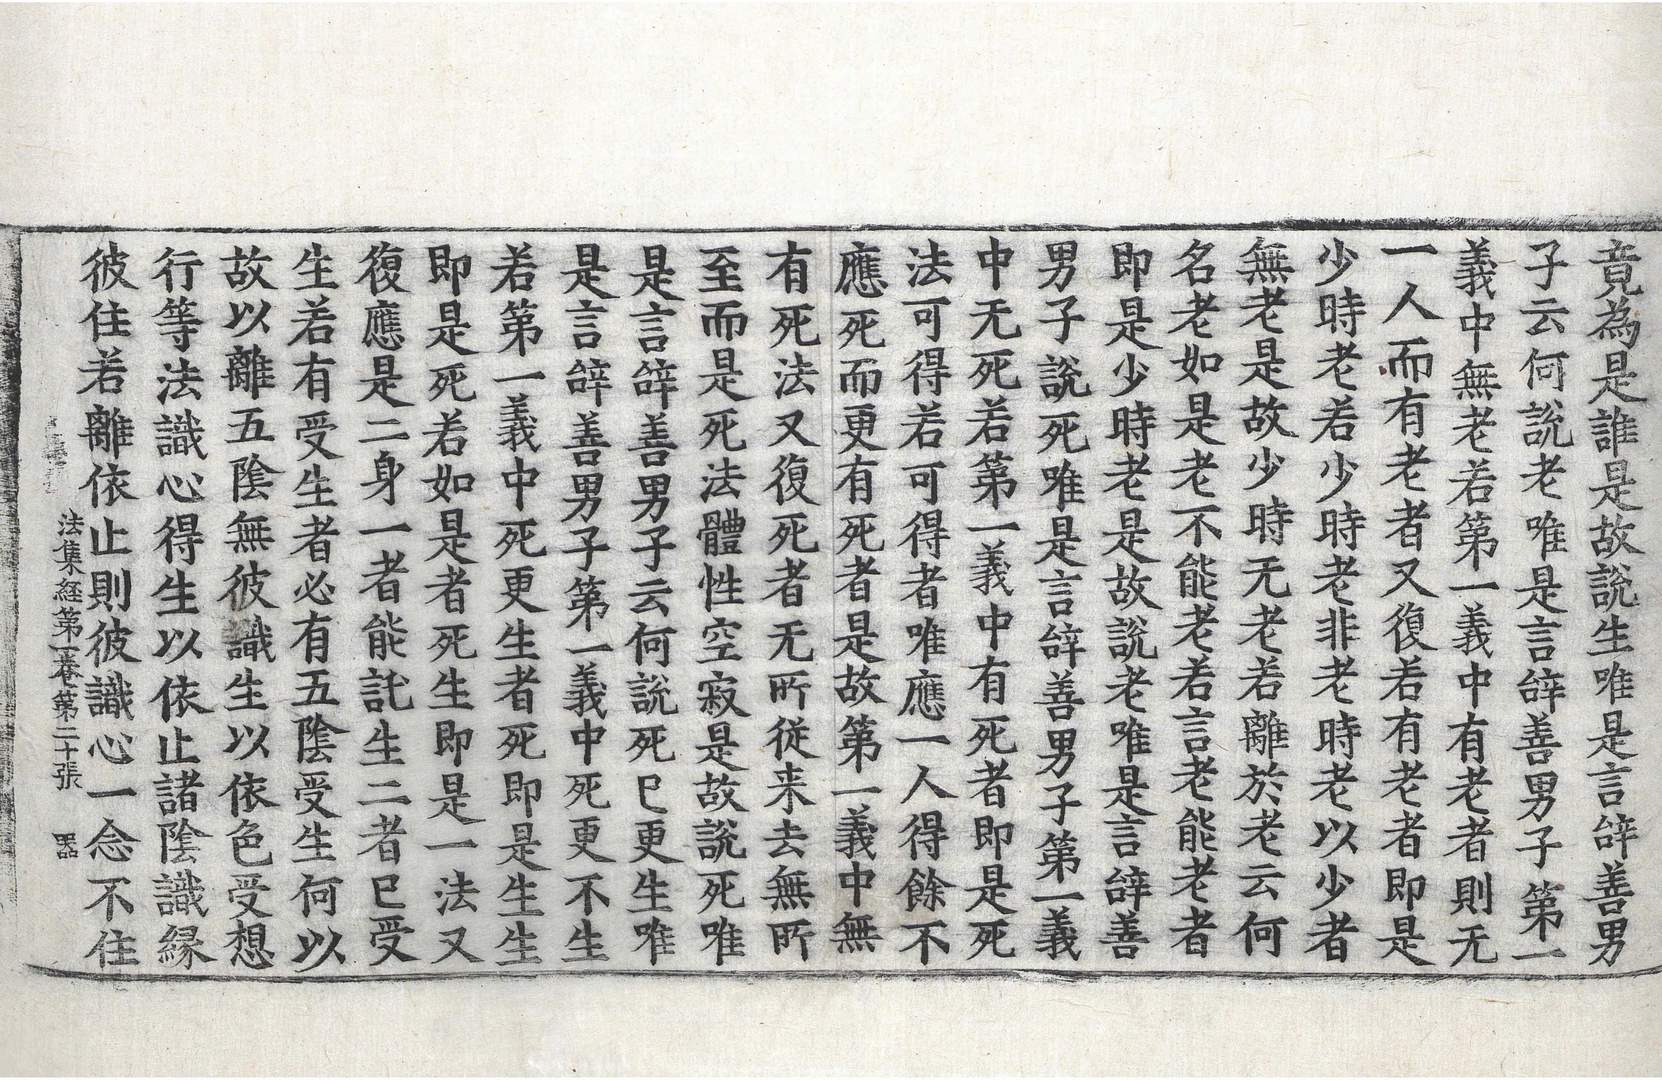 竟為是誰是故說生唯是言辝善男
子云何說老唯是言辝善男子第一
義中無老若第一義中有老者則无
一人而有老者又復若有老者即是
少時老若少時老非老時老以少者
無老是故少時无老若離於老云何
名老如是老不能老若言老能老者
即是少時老是故說老唯是言辝善
男子說死唯是言辝善男子第一義
中无死若第一義中有死者即是死
法可得若可得者唯應一人得餘不
應死而更有死者是故第一義中無
有死法又復死者无所從来去無所
至而是死法體性空寂是故說死唯
是言辝善男子云何說死已更生唯
是言辝善男子第一義中死更不生
若第一義中死更生者死即是生生
即是死若如是者死生即是一法又
復應是二身一者能託生二者已受
生若有受生者必有五陰受生何以
故以離五陰無彼識生以依色受想
行等法識心得生以依止諸陰識緣
彼住若離依止則彼識心一念不住
法集経第一卷第二十張 器